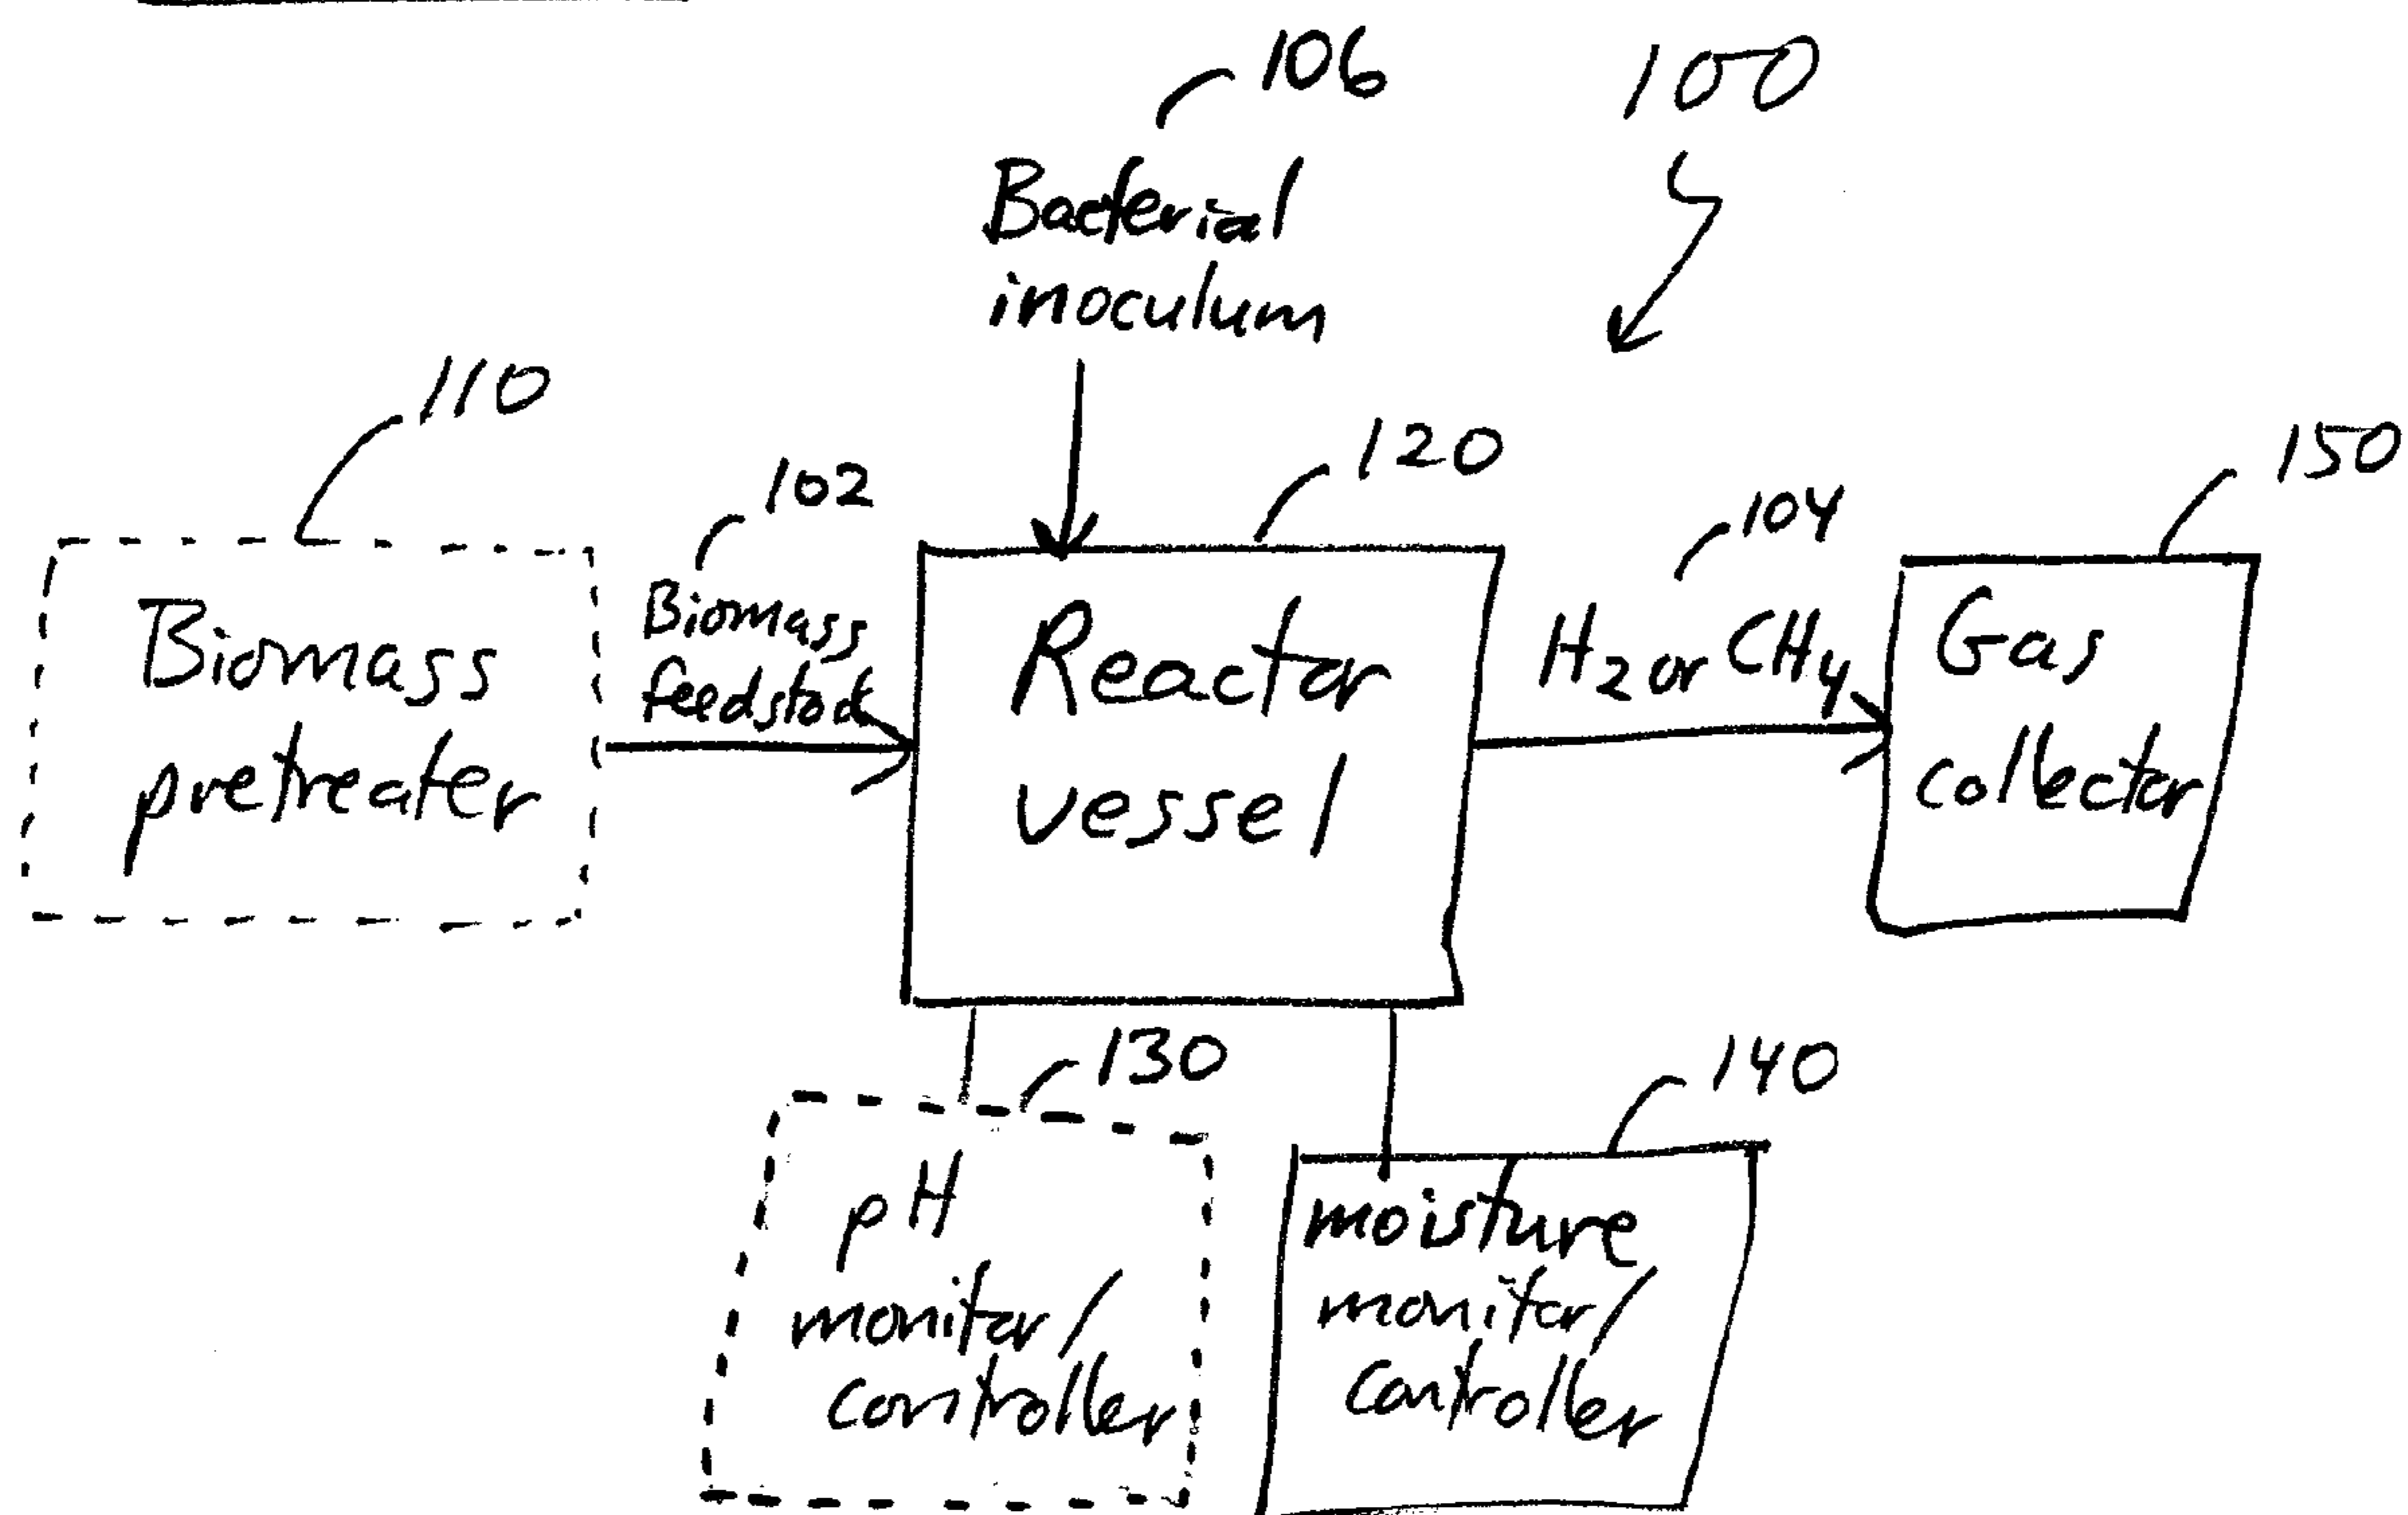 106
100
Bacterial
inoculum
110
120
150
102
104
Biomass
feedstock
Biomass
pretreater
Reactor
vessel
H2 or CH4
Gas
collector
130
140
pH
monitor/
controller
moisture
monitor/
controller